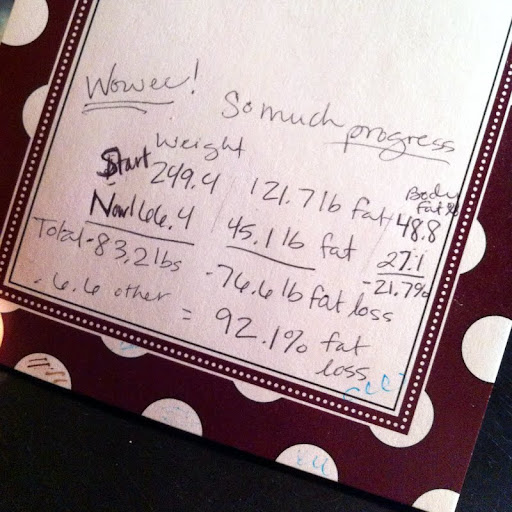 Wowee!
So much progress
Weight Body fat %
Start 249.4 / 121.7 lb fat / 48.8
Now 166.4 45.1 lb fat 27.1
Total -83.2 lbs -76.6 lb fat loss -21.7%
- 6.6 other = 92.1% fat
loss